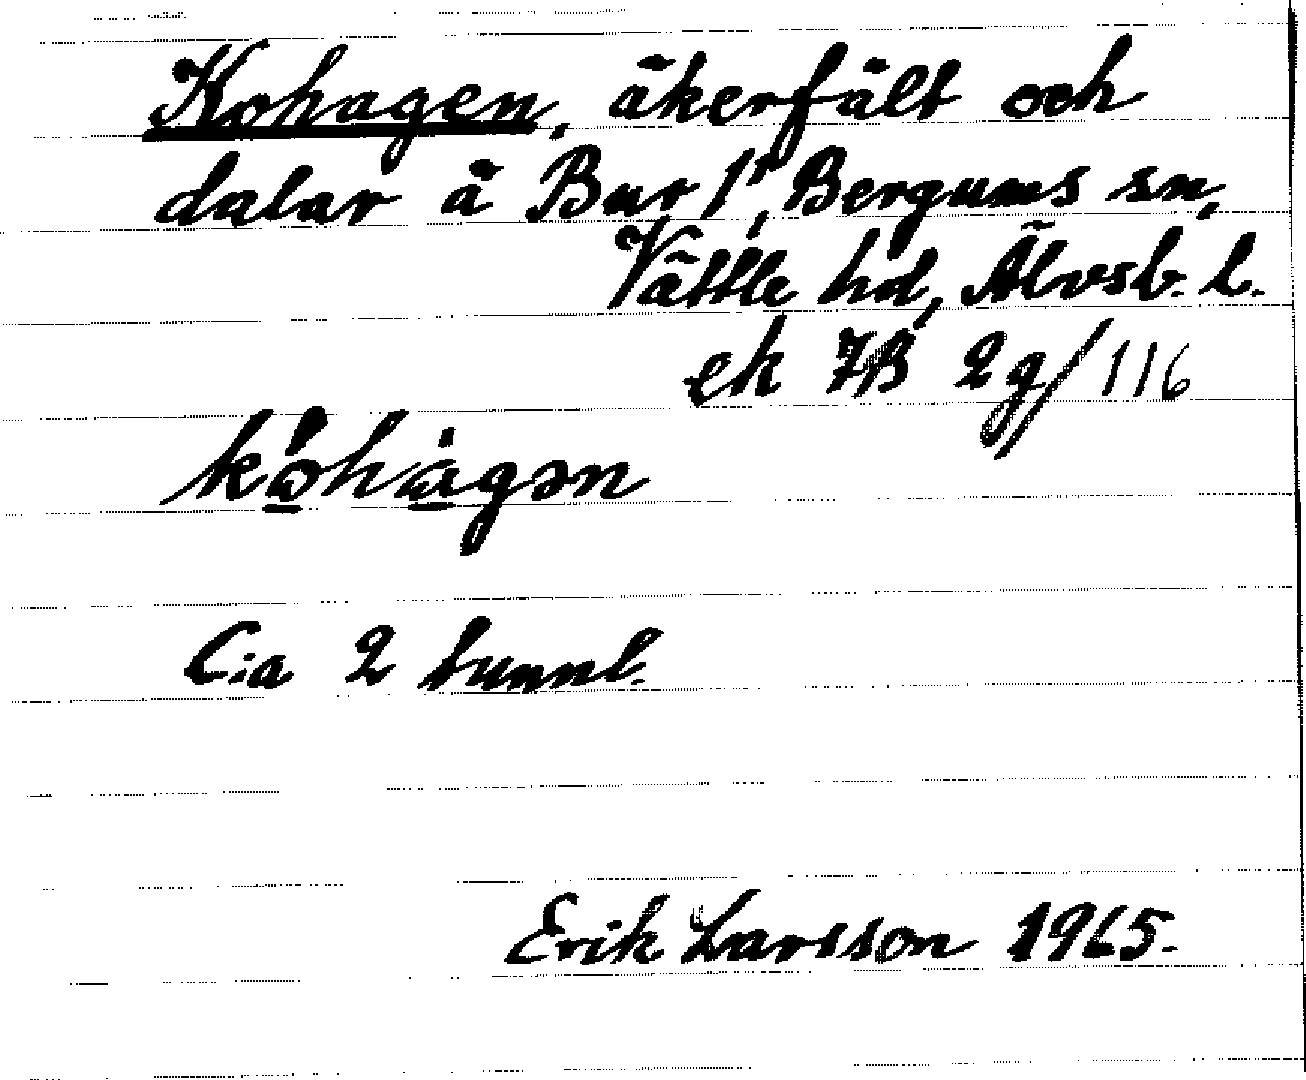 Kohagen, åkerfält och
dalar å Bur 1¹, Bergums sn,
Vättle hd, Älvsb. l.
ek 7B 2g/116
kohagən
Cia 2 tunnl.
Erik Larsson 1965.